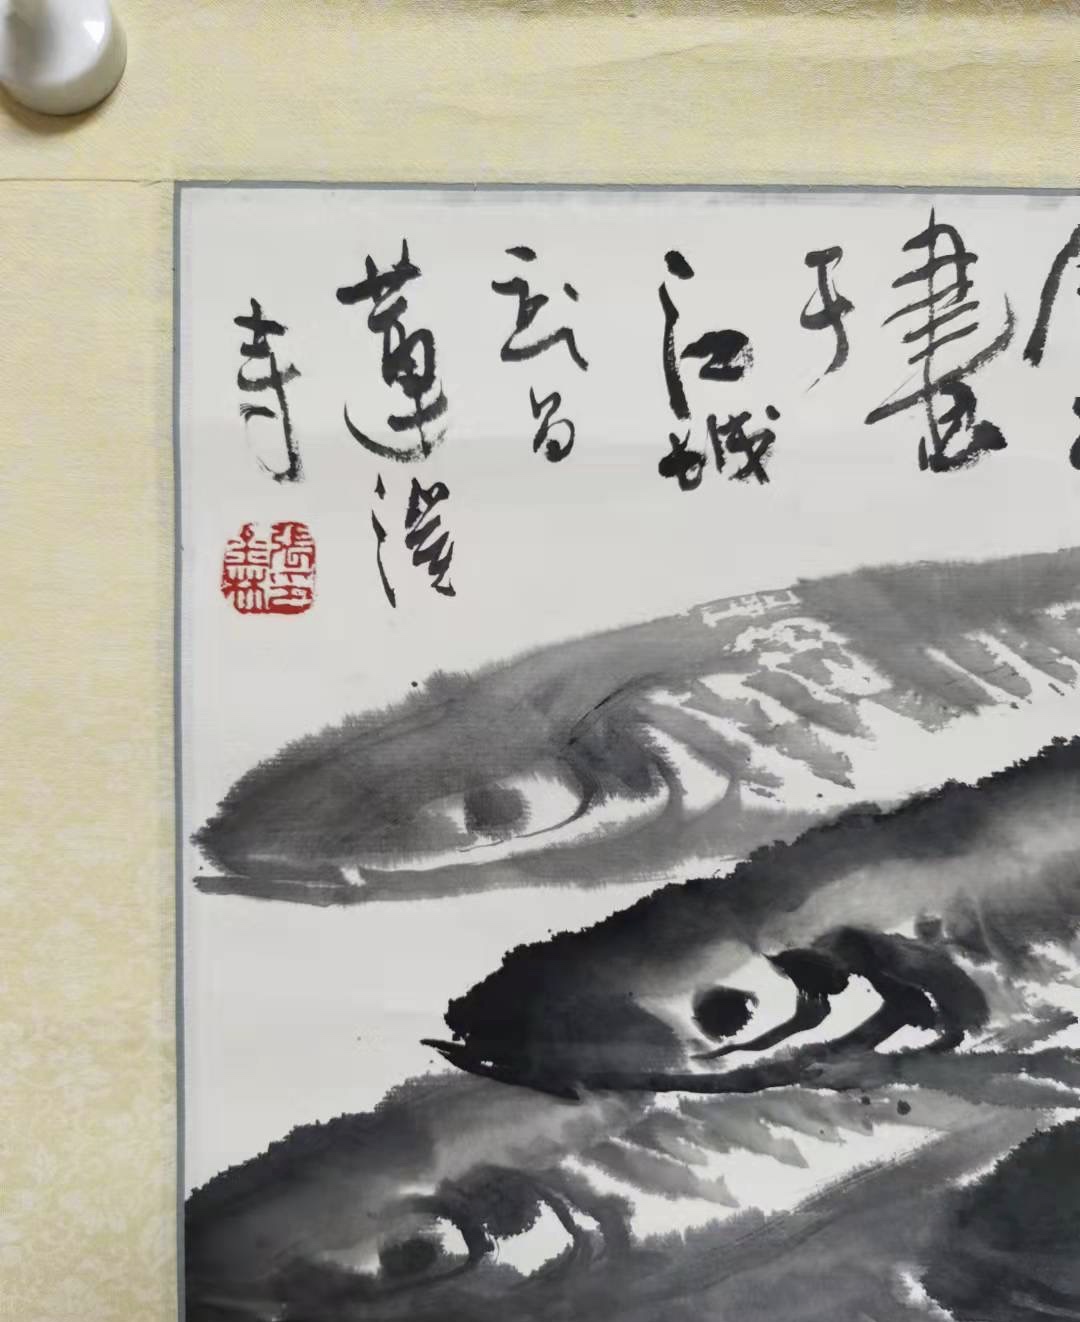 畫
于
江城
武昌
蓮溪
寺